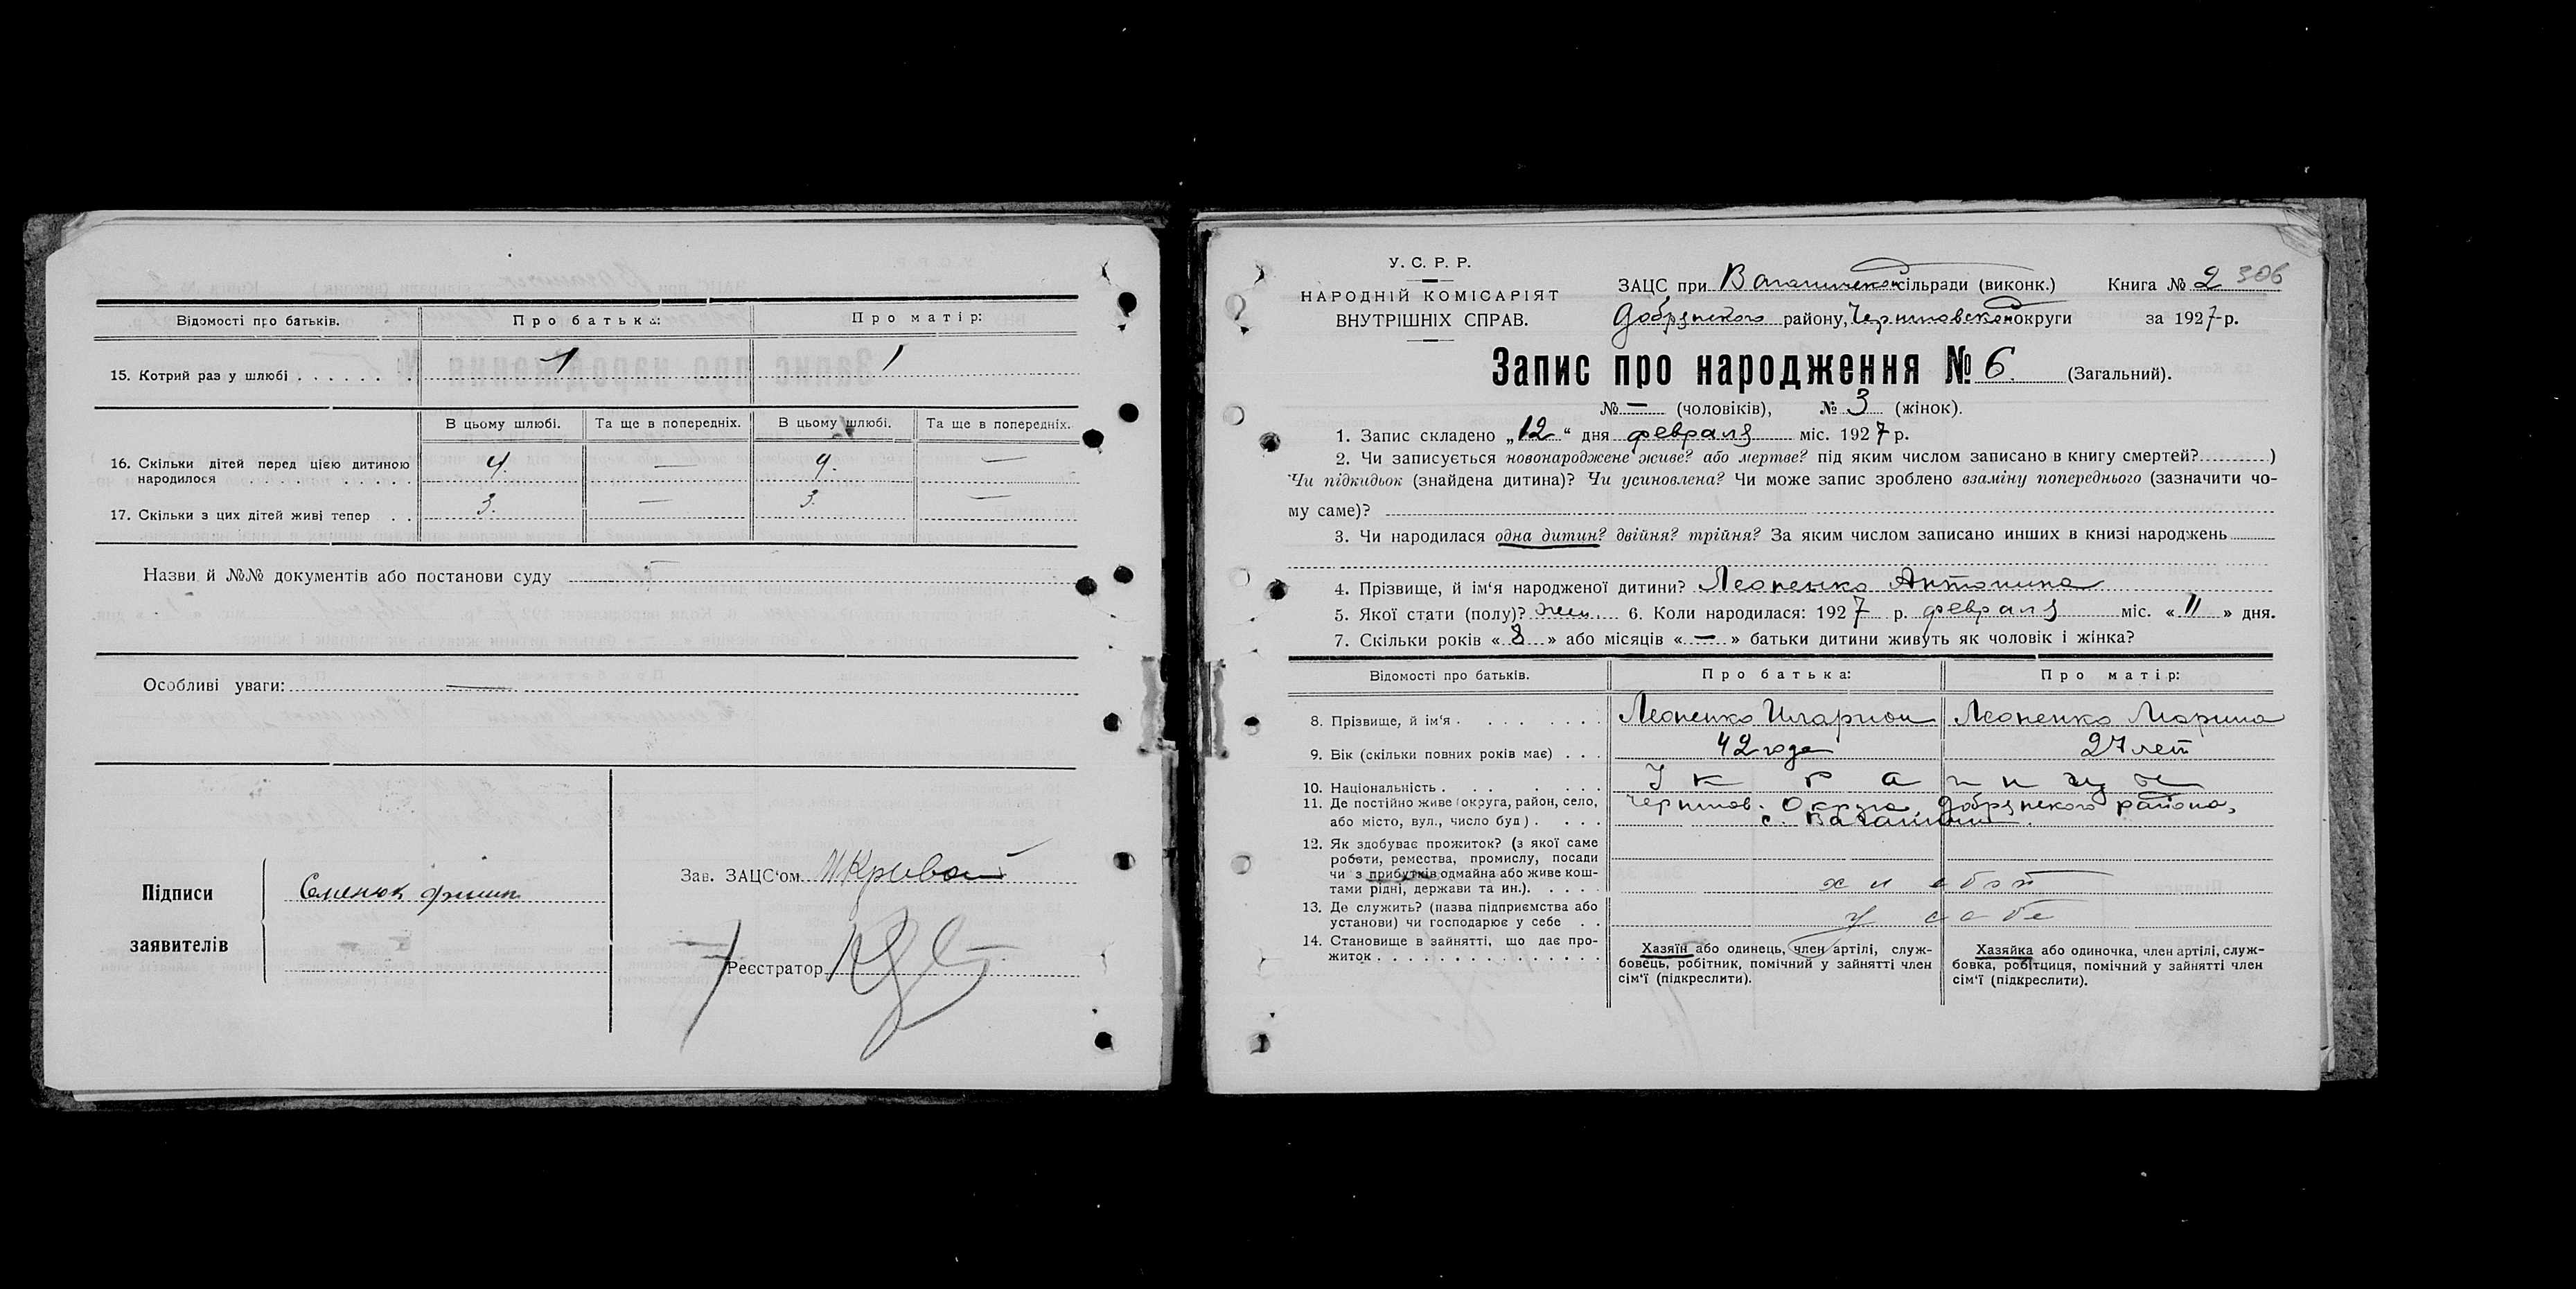 Відомості про батьків. Про батька: Про матір:
15. Котрий раз у шлюбі . . . . . . . 1 1
В цьому шлюбі. Та ще в попередніх. В цьому шлюбі. Та ще в попередніх.
16. Скільки дітей перед цією дитиною
народилося . . . . . . . . . 4. — 4. —
17. Скільки з цих дітей живі тепер . . 3. — 3. —
Назви й №№ документів або постанови суду
Особливі уваги: —
Підписи
заявителів
Зав. ЗАЦС'ом И Кривой
Реєстратор
У. С. Р. Р.
НАРОДНІЙ КОМІСАРІЯТ
ВНУТРІШНІХ СПРАВ.
ЗАЦС при сільради (виконк.) Книга № 2 306
Добрянского району, Черниговской округи за 1927 р.
Запис про народження № 6. (Загальний).
№ — (чоловіків), № 3 (жінок).
1. Запис складено „12“ дня февраля міс. 1927 р.
2. Чи записується новонароджене живе? або мертве? під яким числом записано в книгу смертей? )
Чи підкидьок (знайдена дитина)? Чи усиновлена? Чи може запис зроблено взаміну попереднього (зазначити чо-
му саме)?
3. Чи народилася одна дитин? двійня? трійня? За яким числом записано инших в книзі народжень
4. Прізвище, й ім'я народженої дитини? Леоненко Антонина
5. Якої стати (полу)? жен. 6. Коли народилася: 1927 р. февраля міс. «11» дня.
7. Скільки років «8» або місяців «—» батьки дитини живуть як чоловік і жінка?
Відомості про батьків. Про батька: Про матір:
8. Прізвище, й ім'я . . . . . . . Леоненко Иларион Леоненко Марина
9. Вік (скільки повних років має) . . . 42 года 27 лет
10. Національність . . . . . . . Украинцы
11. Де постійно живе (округа, район, село, Чернигов. Округа, Добрянского района,
або місто, вул., число буд) . . . . с.
12. Як здобуває прожиток? (з якої саме
роботи, ремества, промислу, посади
чи з прибутків одмайна або живе кош-
тами рідні, держави та ин.). . . . .
13. Де служить? (назва підприємства або
установи) чи господарює у себе . . у себе
14. Становище в зайнятті, що дає про-
житок . . . . . . . . . . . . . .
Хазяїн або одинець, член артілі, служ-
бовець, робітник, помічний у зайнятті член
сім'ї (підкреслити).
Хазяйка або одиночка, член артілі, служ-
бовка, робітциця, помічний у зайнятті член
сім'ї (підкреслити).